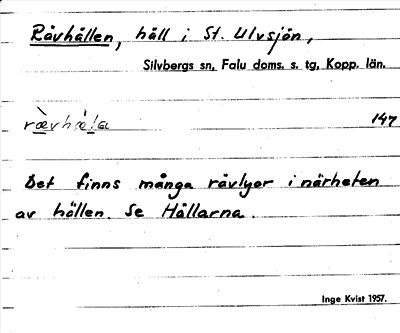 Rävhällen, häll i St. Ulvsjön,
Silvbergs sn, Falu doms. s. tg, Kopp. län.
147
Det finns många rävlyor i närheten
av höllen. Se Hällarna.
Inge Kvist 1957.